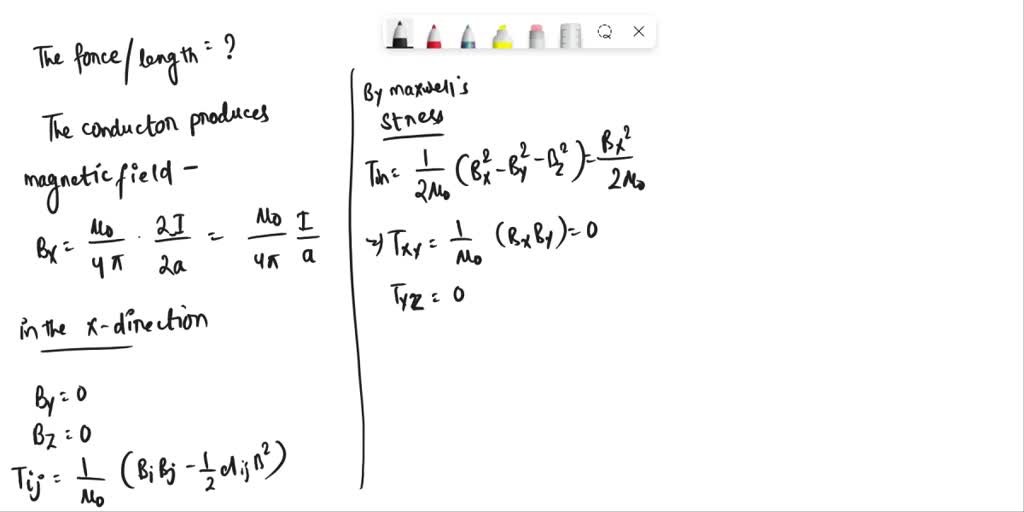 The force/length = ?
The conductor produces
magnetic field -
Bx = μ0/4π · 2I/2a = μ0/4π I/a
in the x-direction
By = 0
Bz = 0
Tij = 1/μ0 (BiBj - 1/2 dij B²)
By maxwell's
stress
Txx = 1/2μ0 (Bx² - By² - Bz²) = Bx²/2μ0
⇒ Txy = 1/μ0 (BxBy) = 0
Tyz = 0